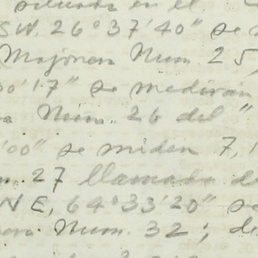 situada en el
SW. 26°37'40" se
Mojonera Num. 25,
00'17" se medirán
Núm. 26 del "
'00" se miden 7,1
27 llamada de
NE, 64°33'20" se
Num. 32; de